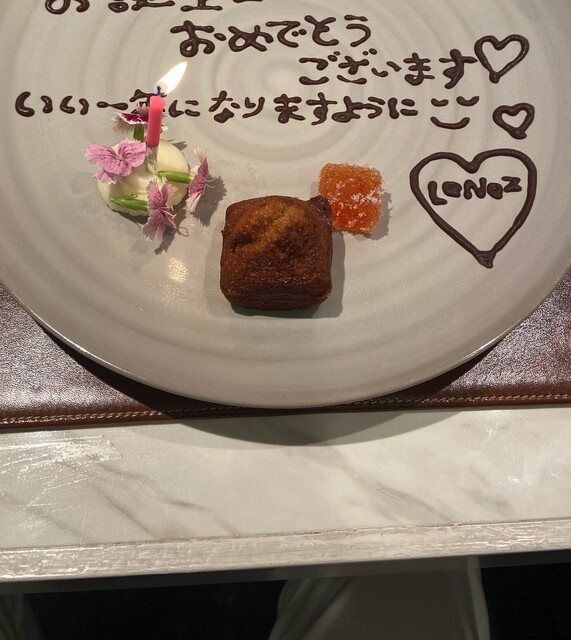 お誕生日
おめでとう
ございます♡
いい一年になりますように
LeNez